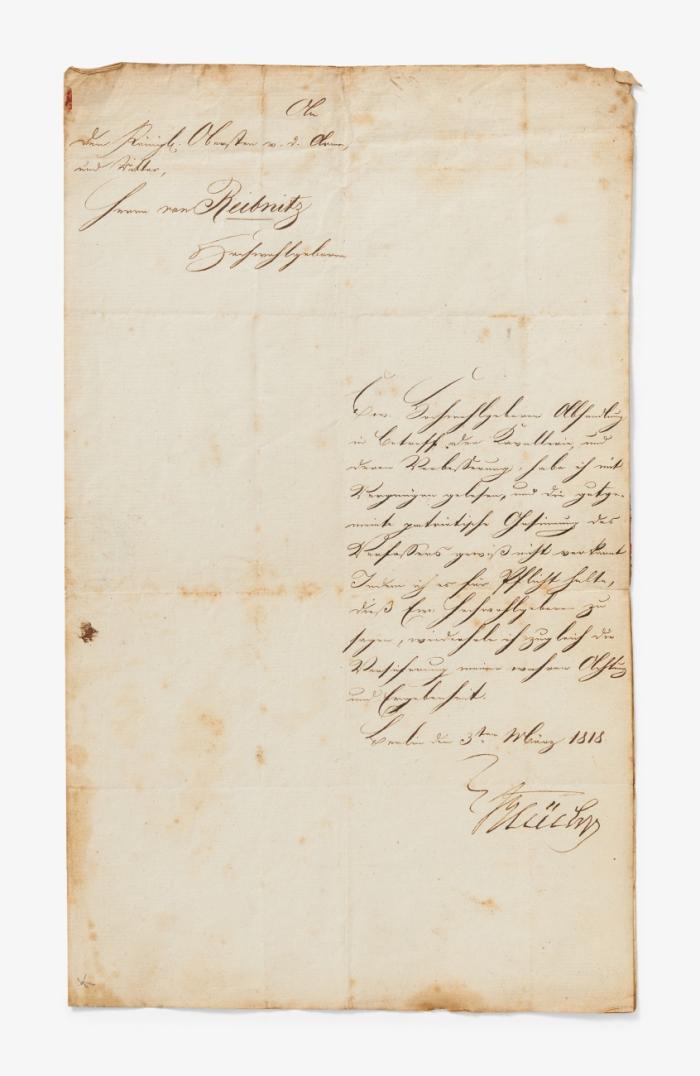 An
den Königl. Obersten v. d. Armee,
und Ritter,
Herrn von Reibnitz
Hochwohlgeboren
Ew. Hochwohlgeboren Abhandlung
in Betreff der Kavallerie, und
deren Verbesserung, habe ich mit
Vergnügen gelesen, und die gutge-
meinte patriotische Gesinnung des
Verfassers gewiß nicht verkannt
Indem ich es für Pflicht halte,
dieß Ew. Hochwohlgeboren zu
sagen, wiederhole ich zugleich die
Versicherung meiner wahren Achtung
und Ergebenheit.
Berlin den 3ten März 1818
Blücher